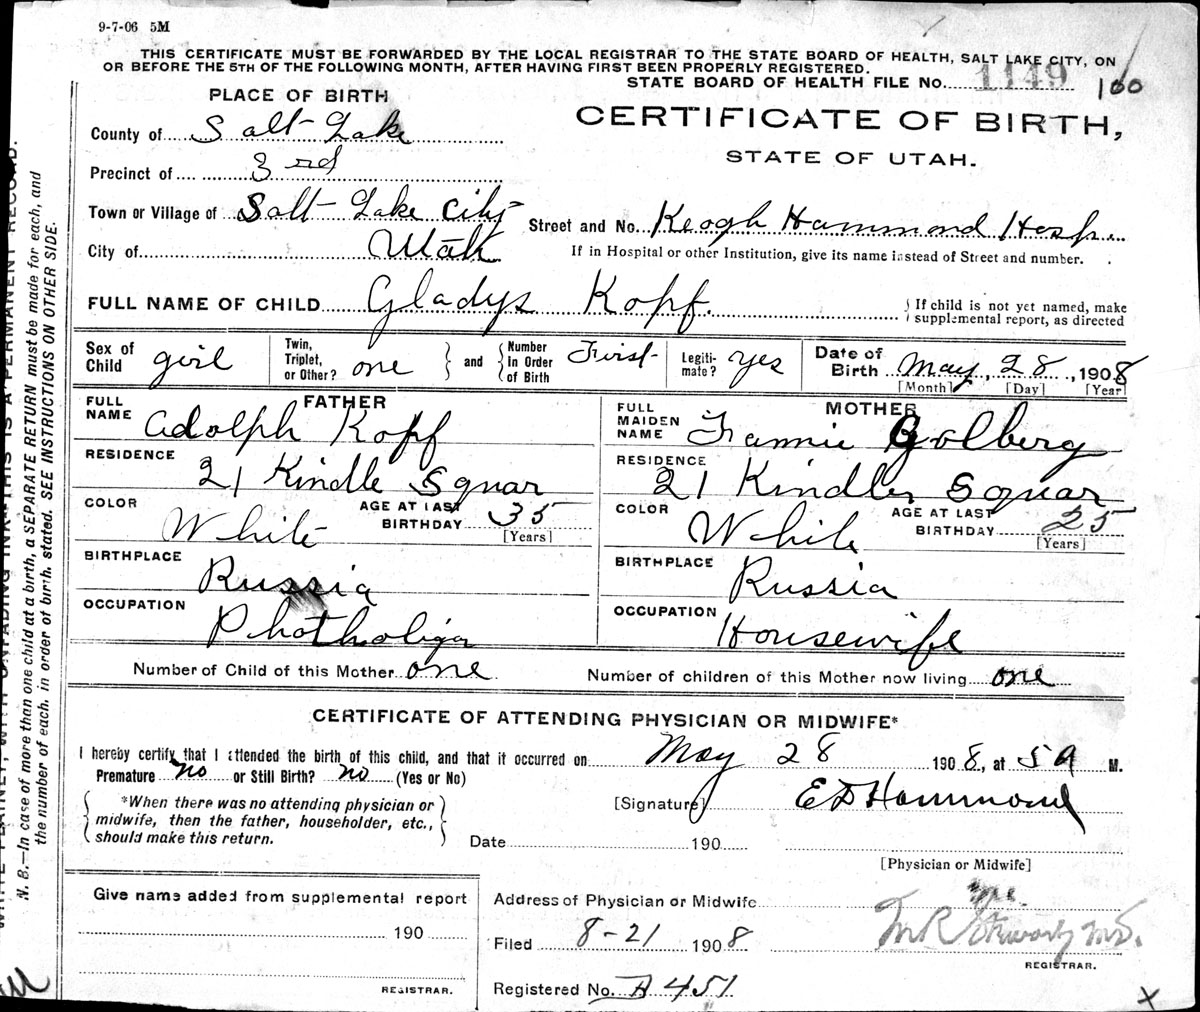 9-7-06 5M
THIS CERTIFICATE MUST BE FORWARDED BY THE LOCAL REGISTRAR TO THE STATE BOARD OF HEALTH, SALT LAKE CITY, ON
OR BEFORE THE 5TH OF THE FOLLOWING MONTH, AFTER HAVING FIRST BEEN PROPERLY REGISTERED.
STATE BOARD OF HEALTH FILE No. 1149 100
PLACE OF BIRTH
CERTIFICATE OF BIRTH,
STATE OF UTAH.
County of Salt Lake
Precinct of 3rd
Town or Village of Salt Lake City
Street and No. Keogh Hammond Hosp.
City of Utah
If in Hospital or other Institution, give its name instead of Street and number.
FULL NAME OF CHILD Gladys Kopf.
{ If child is not yet named, make
supplemental report, as directed
Sex of Child girl
Twin, Triplet, or Other? one } and { Number In Order of Birth First
Legiti-mate? yes
Date of Birth May, 28, 1908
[Month] [Day] [Year]
FATHER
FULL NAME Adolph Kopf
MOTHER
FULL MAIDEN NAME Fannie Golberg
RESIDENCE 21 Kindle Squar
RESIDENCE 21 Kindler Squar
COLOR White
AGE AT LAST BIRTHDAY 35
[Years]
COLOR White
AGE AT LAST BIRTHDAY 25
[Years]
BIRTHPLACE Russia
BIRTHPLACE Russia
OCCUPATION
OCCUPATION Housewife
Number of Child of this Mother one
Number of children of this Mother now living one
CERTIFICATE OF ATTENDING PHYSICIAN OR MIDWIFE*
I hereby certify that I attended the birth of this child, and that it occurred on May 28 1908, at 5 a M.
Premature no or Still Birth? no (Yes or No)
{ *When there was no attending physician or
midwife, then the father, householder, etc.,
should make this return. }
[Signature] ED Hammond
Date 190
[Physician or Midwife]
Give name added from supplemental report
190
REGISTRAR.
Address of Physician or Midwife
Filed 8-21 1908
REGISTRAR.
Registered No. A 451
X
N. B.—In case of more than one child at a birth, a SEPARATE RETURN must be made for each, and
the number of each, in order of birth, stated. SEE INSTRUCTIONS ON OTHER SIDE.